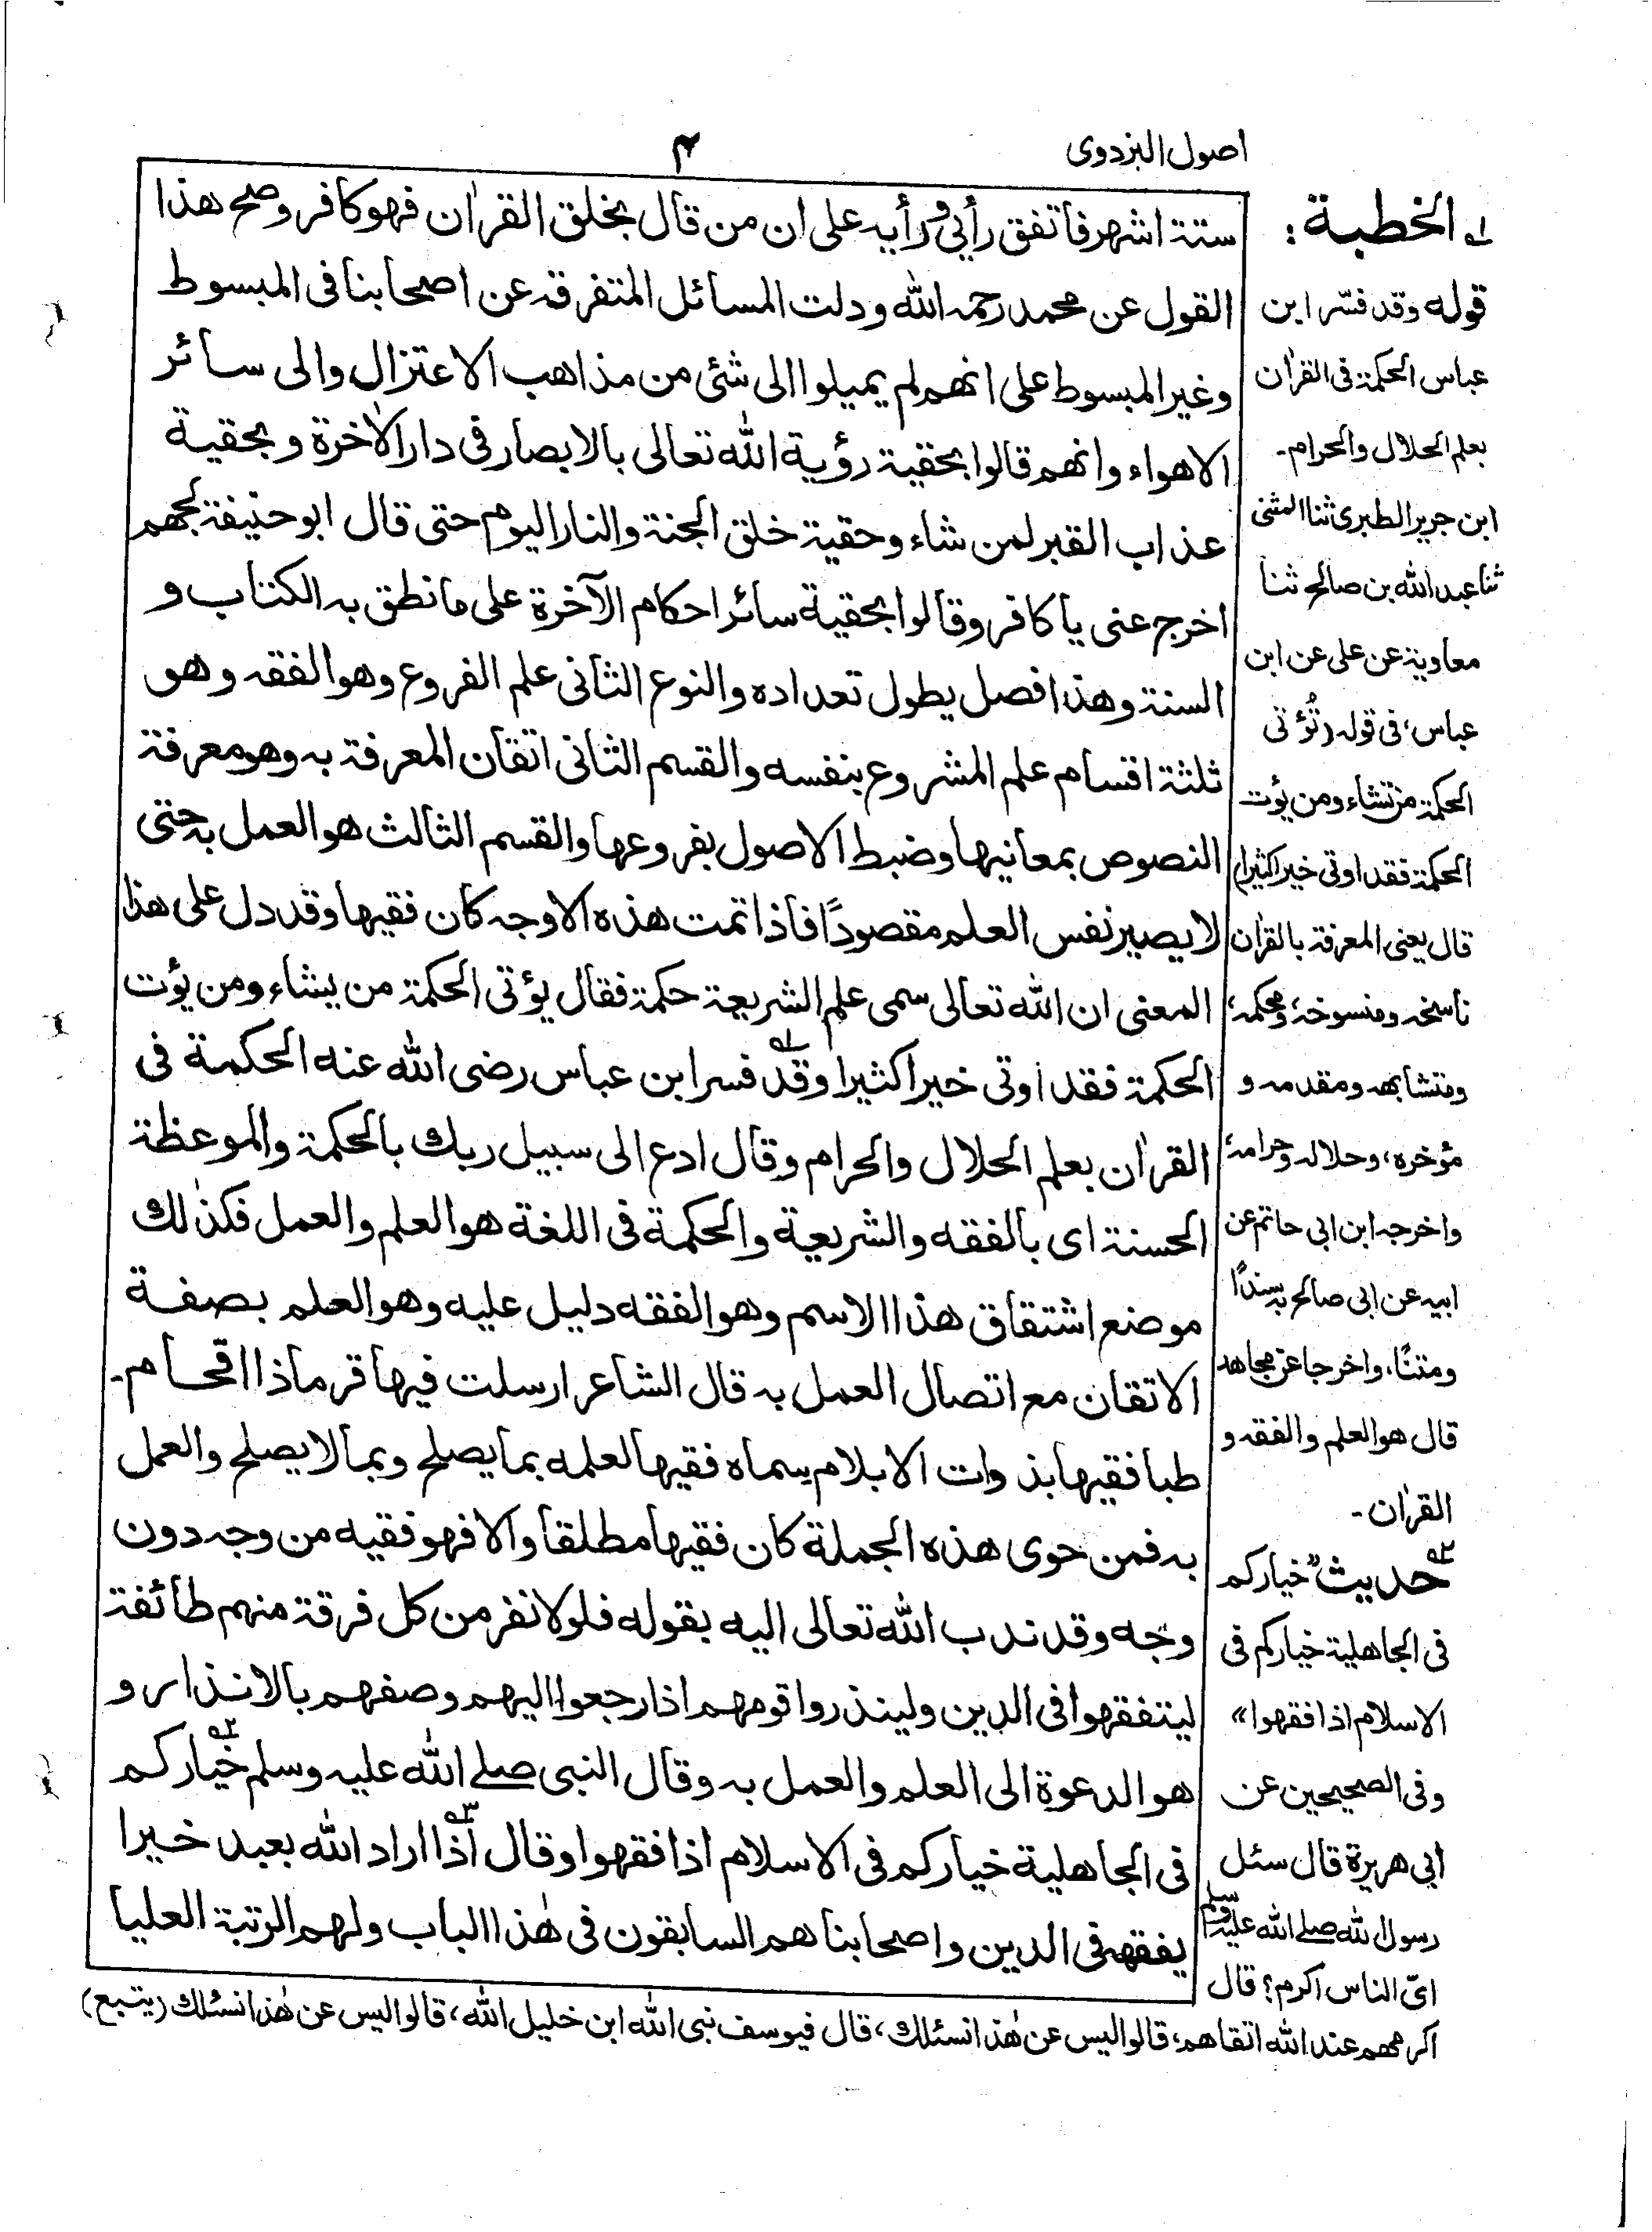 اصول البزدوی
۴
ستة اشهر فاتفق رأیی ورأیه علی ان من قال بخلق القراٰن فهو کافر وصح هذا
القول عن محمد رحمه الله ودلت المسائل المتفرقه عن اصحابنا فی المبسوط
وغیر المبسوط علی انهم لم یمیلوا الی شئی من مذاهب الاعتزال والی سائر
الاهواء وانهم قالوا بحقیة رؤیة الله تعالی بالابصار فی دار الاٰخرة وبحقیة
عذاب القبر لمن شاء وحقیة خلق الجنة والنار الیوم حتی قال ابو حنیفة لجهم
اخرج عنی یا کافر وقالوا بحقیة سائر احکام الآخرة علی ما نطق به الکتاب و
السنة وهذا فصل یطول تعداده والنوع الثانی علم الفروع وهو الفقه وهو
ثلثة اقسام علم المشروع بنفسه والقسم الثانی اتقان المعرفة به وهو معرفة
النصوص بمعانیها وضبط الاصول بفروعها والقسم الثالث هو العمل به حتی
لا یصیر نفس العلم مقصودًا فاذا تمت هذه الاوجه کان فقیها وقد دل علی هذا
المعنی ان الله تعالی سمی علم الشریعة حکمة فقال یؤتی الحکمة من یشاء ومن یؤت
الحکمة فقد اوتی خیرا کثیرا وقد ۱ فسر ابن عباس رضی الله عنه الحکمة فی
القراٰن بعلم الحلال والحرام وقال ادع الی سبیل ربك بالحکمة والموعظة
الحسنة ای بالفقه والشریعة والحکمة فی اللغة هو العلم والعمل فکذٰلك
موضع اشتقاق هذا الاسم وهو الفقه دلیل علیه وهو العلم بصفة
الاتقان مع اتصال العمل به قال الشاعر ارسلت فیها قرما ذا اقحام۔
طبا فقیها بذوات الابلام سماه فقیها لعلمه بما یصلح وبما لا یصلح والعمل
به فمن حوی هذه الجملة کان فقیها مطلقا والا فهو فقیه من وجه دون
وجه وقد ندب الله تعالی الیه بقوله فلولا نفر من کل فرقة منهم طائفة
لیتفقهوا فی الدین ولینذروا قومهم اذا رجعوا الیهم وصفهم بالانذار و
هو الدعوة الی العلم والعمل به وقال النبی صلے الله علیه وسلم ۲ خیارکم
فی الجاهلیة خیارکم فی الاسلام اذا فقهوا وقال ۳ اذا اراد الله بعبد خیرا
یفقهه فی الدین واصحابنا هم السابقون فی هٰذا الباب ولهم الرتبة العلیا
۱ الخطبة :
قوله وقد فسّر ابن
عباس الحکمة فی القراٰن
بعلم الحلال والحرام۔
ابن جریر الطبری ثنا المثنی
ثنا عبد الله بن صالح ثنا
معاویة عن علی عن ابن
عباس، فی قوله (تُؤتی
الحکمة من تشاء ومن یؤت
الحکمة فقد اوتی خیرا کثیرا)
قال یعنی المعرفة بالقراٰن
ناسخه ومنسوخه، ومحکمه،
ومتشابهه ومقدمه و
مؤخره، وحلاله وحرامه،
واخرجه ابن ابی حاتم عن
ابیه عن ابی صالح به سندًا
ومتنًا، واخرجا عن مجاهد
قال هو العلم والفقه و
القراٰن ۔
۲ حدیث "خیارکم
فی الجاهلیة خیارکم فی
الاسلام اذا فقهوا"
وفی الصحیحین عن
ابی هریرة قال سئل
رسول الله صلے الله علیه وسلم
ایّ الناس اکرم؟ قال
اکرمهم عند الله اتقاهم، قالوا لیس عن هٰذا نسئلك، قال فیوسف نبی الله ابن خلیل الله، قالوا لیس عن هٰذا نسئلك (یتبع)